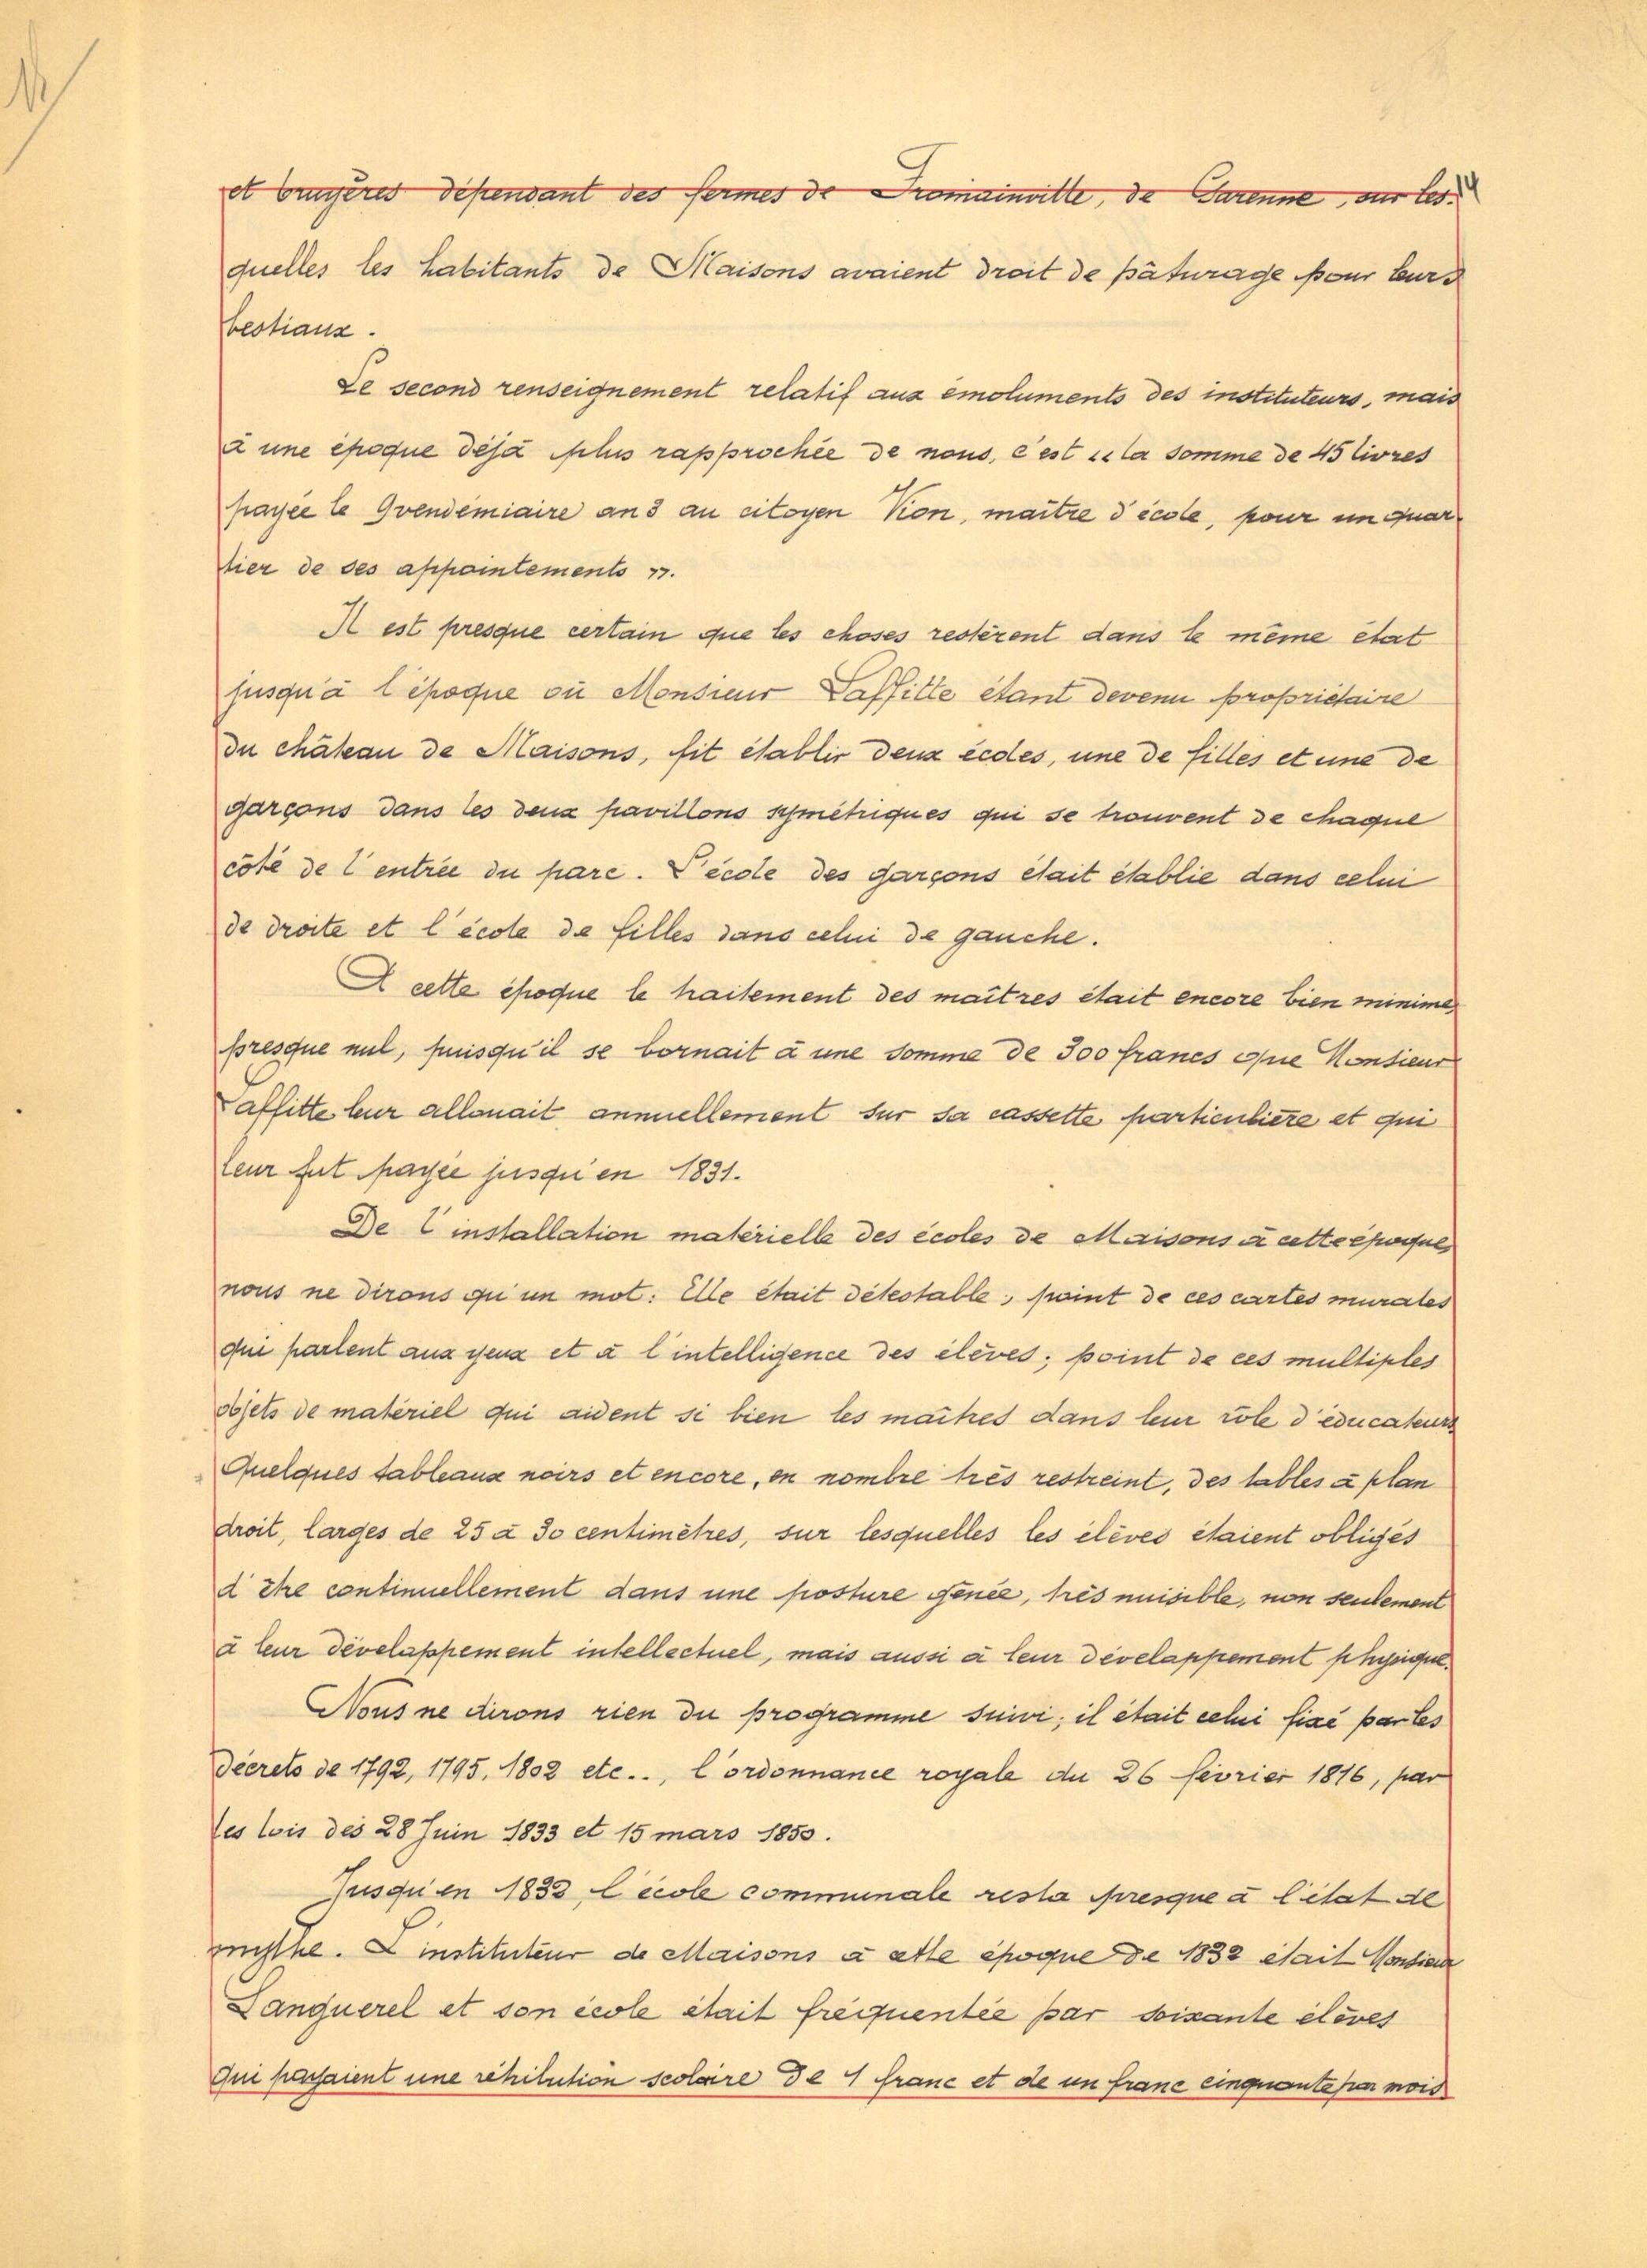 et bruyères dépendant des fermes de Fromainville, de Garenne, sur les- 14
quelles les habitants de Maisons avaient droit de pâturage pour leurs
bestiaux.
Le second renseignement relatif aux émoluments des instituteurs, mais
à une époque déjà plus rapprochée de nous, c'est « la somme de 45 livres
payée le 9 vendémiaire an 3 au citoyen Vion, maître d'école, pour un quar-
tier de ses appointements ».
Il est presque certain que les choses restèrent dans le même état
jusqu'à l'époque où Monsieur Laffitte étant devenu propriétaire
du château de Maisons, fit établir deux écoles, une de filles et une de
garçons dans les deux pavillons symétriques qui se trouvent de chaque
côté de l'entrée du parc. L'école des garçons était établie dans celui
de droite et l'école de filles dans celui de gauche.
A cette époque le traitement des maîtres était encore bien minime,
presque nul, puisqu'il se bornait à une somme de 300 francs que Monsieur
Laffitte leur allouait annuellement sur sa cassette particulière et qui
leur fut payée jusqu'en 1831.
De l'installation matérielle des écoles de Maisons à cette époque,
nous ne dirons qu'un mot: Elle était détestable, point de ces cartes murales
qui parlent aux yeux et à l'intelligence des élèves; point de ces multiples
objets de matériel qui aident si bien les maîtres dans leur rôle d'éducateurs
Quelques tableaux noirs et encore, en nombre très restreint, des tables à plan
droit, larges de 25 à 30 centimètres, sur lesquelles les élèves étaient obligés
d'être continuellement dans une posture gênée, très nuisible, non seulement
à leur développement intellectuel, mais aussi à leur développement physique.
Nous ne dirons rien du programme suivi; il était celui fixé par les
décrets de 1792, 1795, 1802 etc.., l'ordonnance royale du 26 février 1816, par
les lois des 28 Juin 1833 et 15 mars 1850.
Jusqu'en 1832 l'école communale resta presque à l'état de
mythe. L'instituteur de Maisons à cette époque de 1832 était Monsieur
Lanquerel et son école était fréquentée par soixante élèves
qui payaient une rétribution scolaire de 1 franc et de un franc cinquante par mois